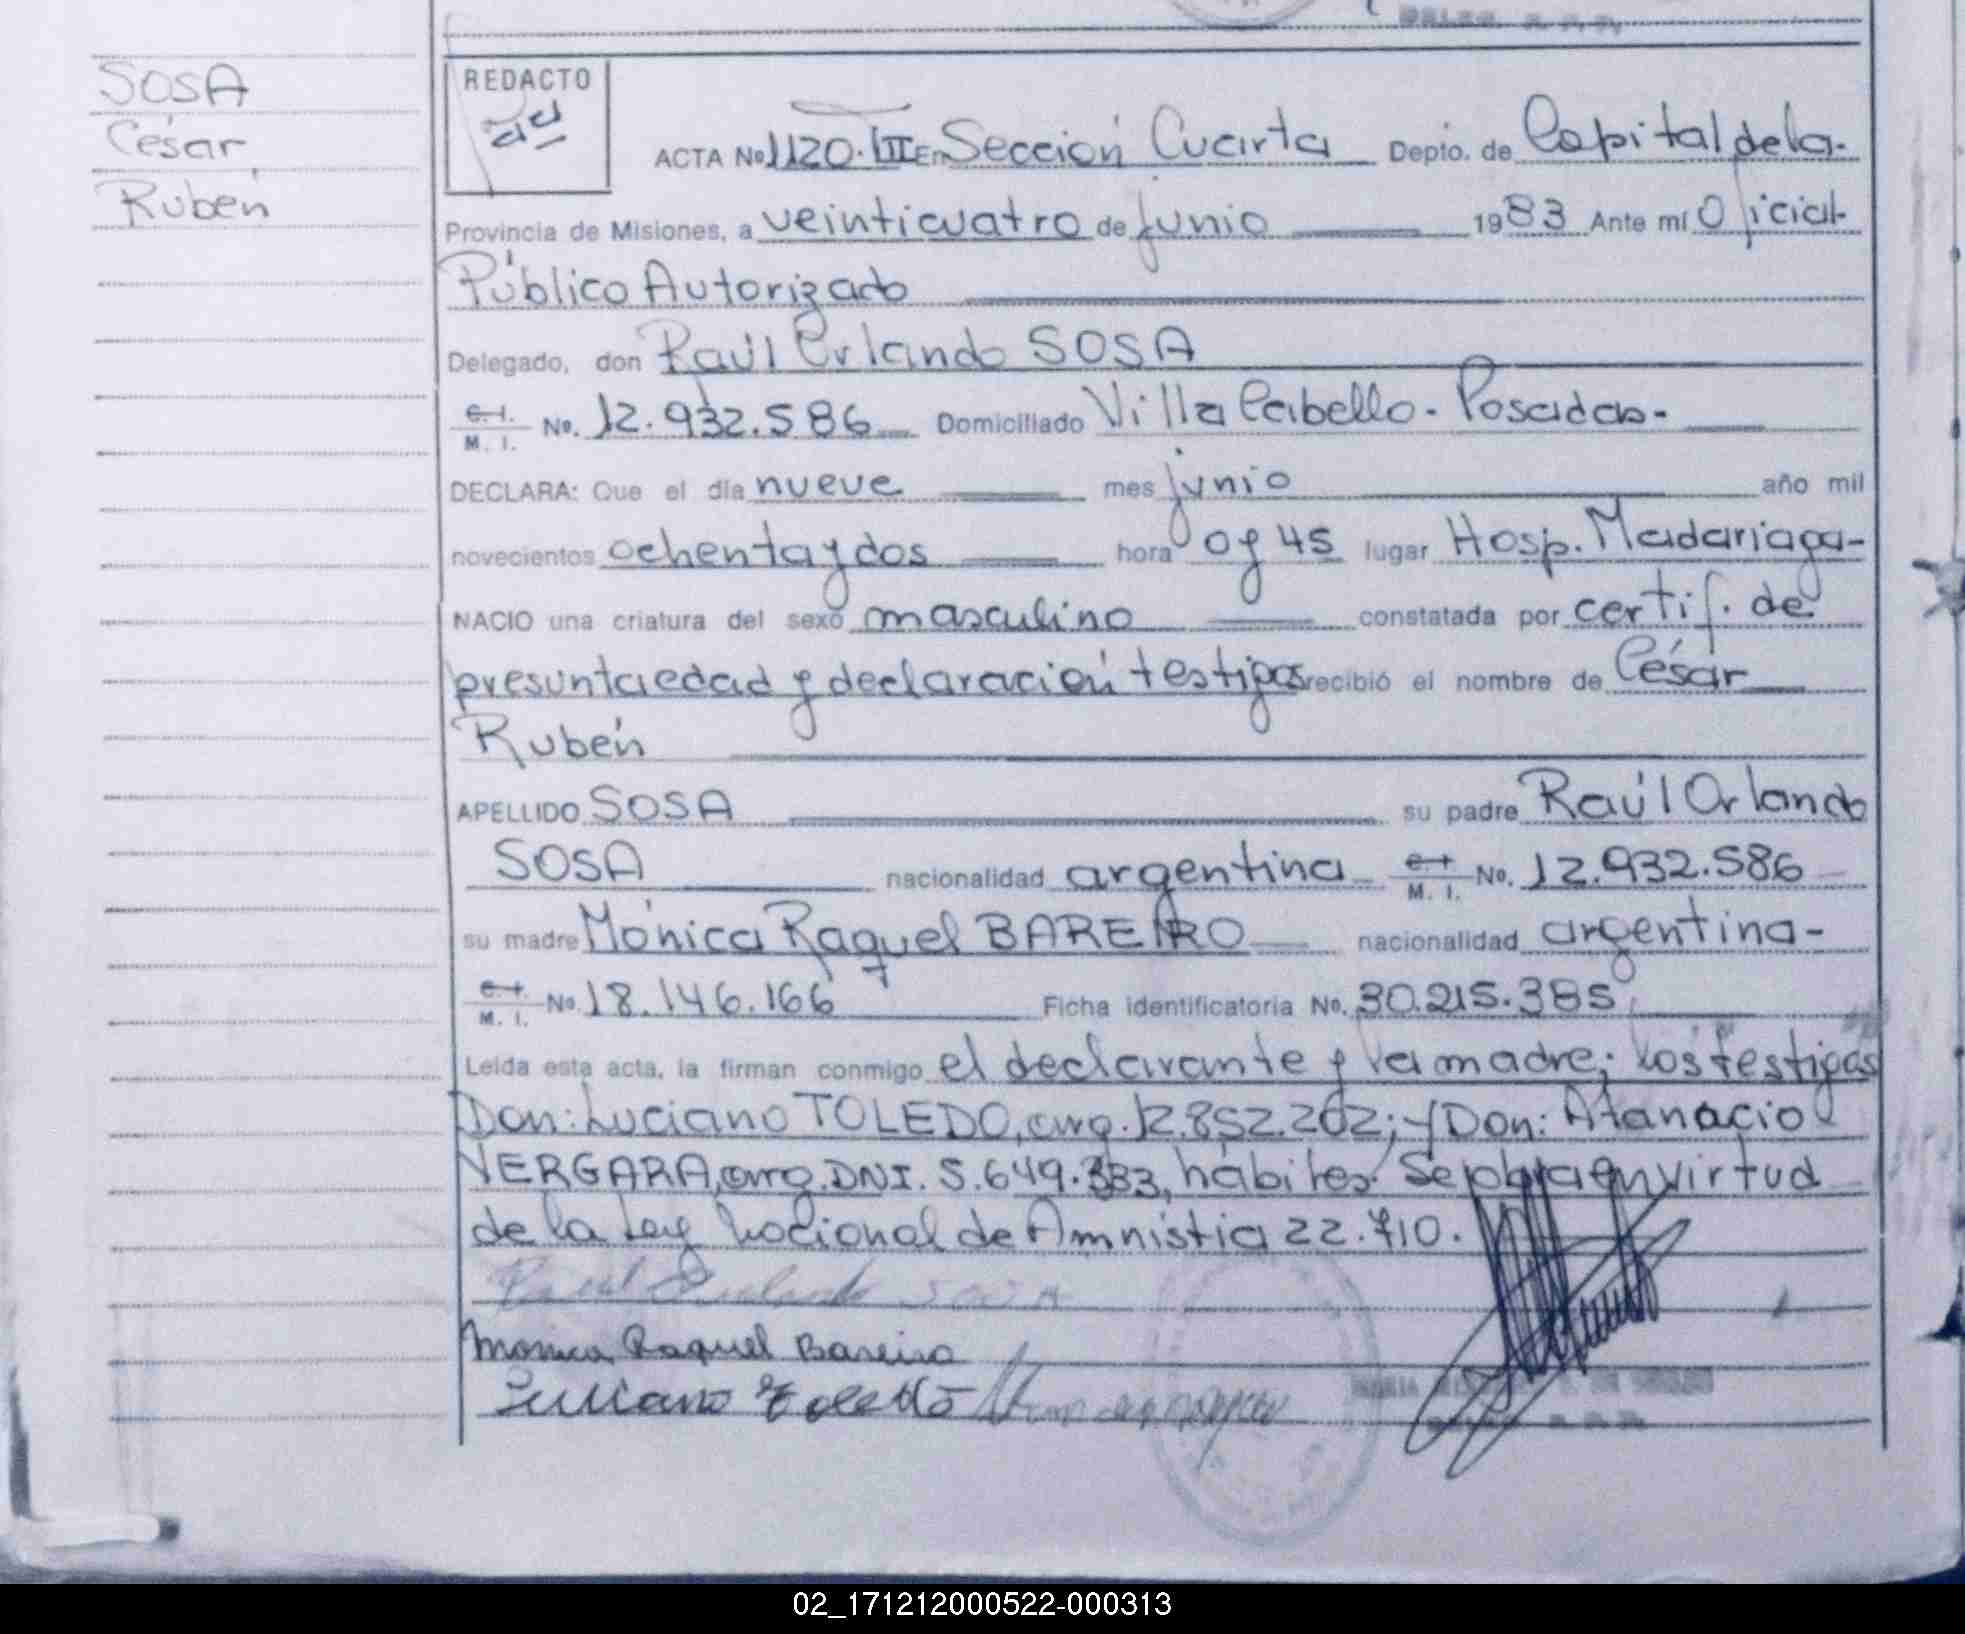 SOSA
César
Rubén
REDACTO
ACTA No 1120. III En Sección Cuarta Depto. de Capital de la
Provincia de Misiones, a veinticuatro de junio 1983 Ante mí Oficial
Público Autorizado
Delegado, don Raúl Orlando SOSA
C. I. M. I. No. 12.932.586 Domiciliado Villa Cabello - Posadas -
DECLARA: Que el día nueve mes junio año mil
novecientos ochenta y dos hora 09 45 lugar Hosp. Madariaga-
NACIO una criatura del sexo masculino constatada por certif. de
presunta edad y declaración testigos recibió el nombre de César
Rubén
APELLIDO SOSA su padre Raúl Orlando
SOSA nacionalidad argentina C. I. M. I. No. 12.932.586
su madre Mónica Raquel BAREIRO nacionalidad argentina-
C. I. M. I. No. 18.146.166 Ficha identificatoria No. 30.215.385
Leída esta acta, la firman conmigo el declarante y la madre; los testigos
Don: Luciano TOLEDO, arg. 12.852.202; y Don: Atanacio
VERGARA, arg. DNI. 5.649.383, hábiles. Se labra en virtud
de la Ley Nacional de Amnistia 22.710.
Raul Orlando SOSA
Monica Raquel Bareiro
Luciano Toledo
02_171212000522-000313